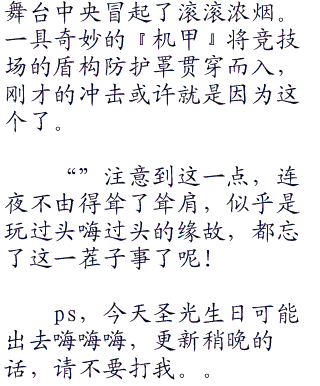 舞台中央冒起了滚滚浓烟。
一具奇妙的『机甲』将竞技
场的盾构防护罩贯穿而入，
刚才的冲击或许就是因为这
个了。
“”注意到这一点，连
夜不由得耸了耸肩，似乎是
玩过头嗨过头的缘故，都忘
了这一茬子事了呢！
ps，今天圣光生日可能
出去嗨嗨嗨，更新稍晚的
话，请不要打我。。